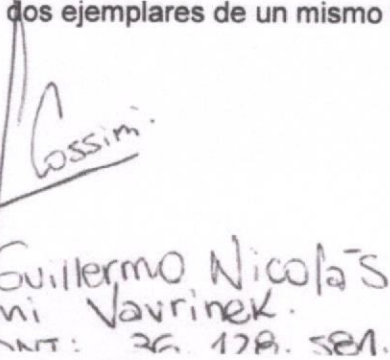 dos ejemplares de un mismo
Cossimi.
Guillermo Nicolás
ni Vavrinek.